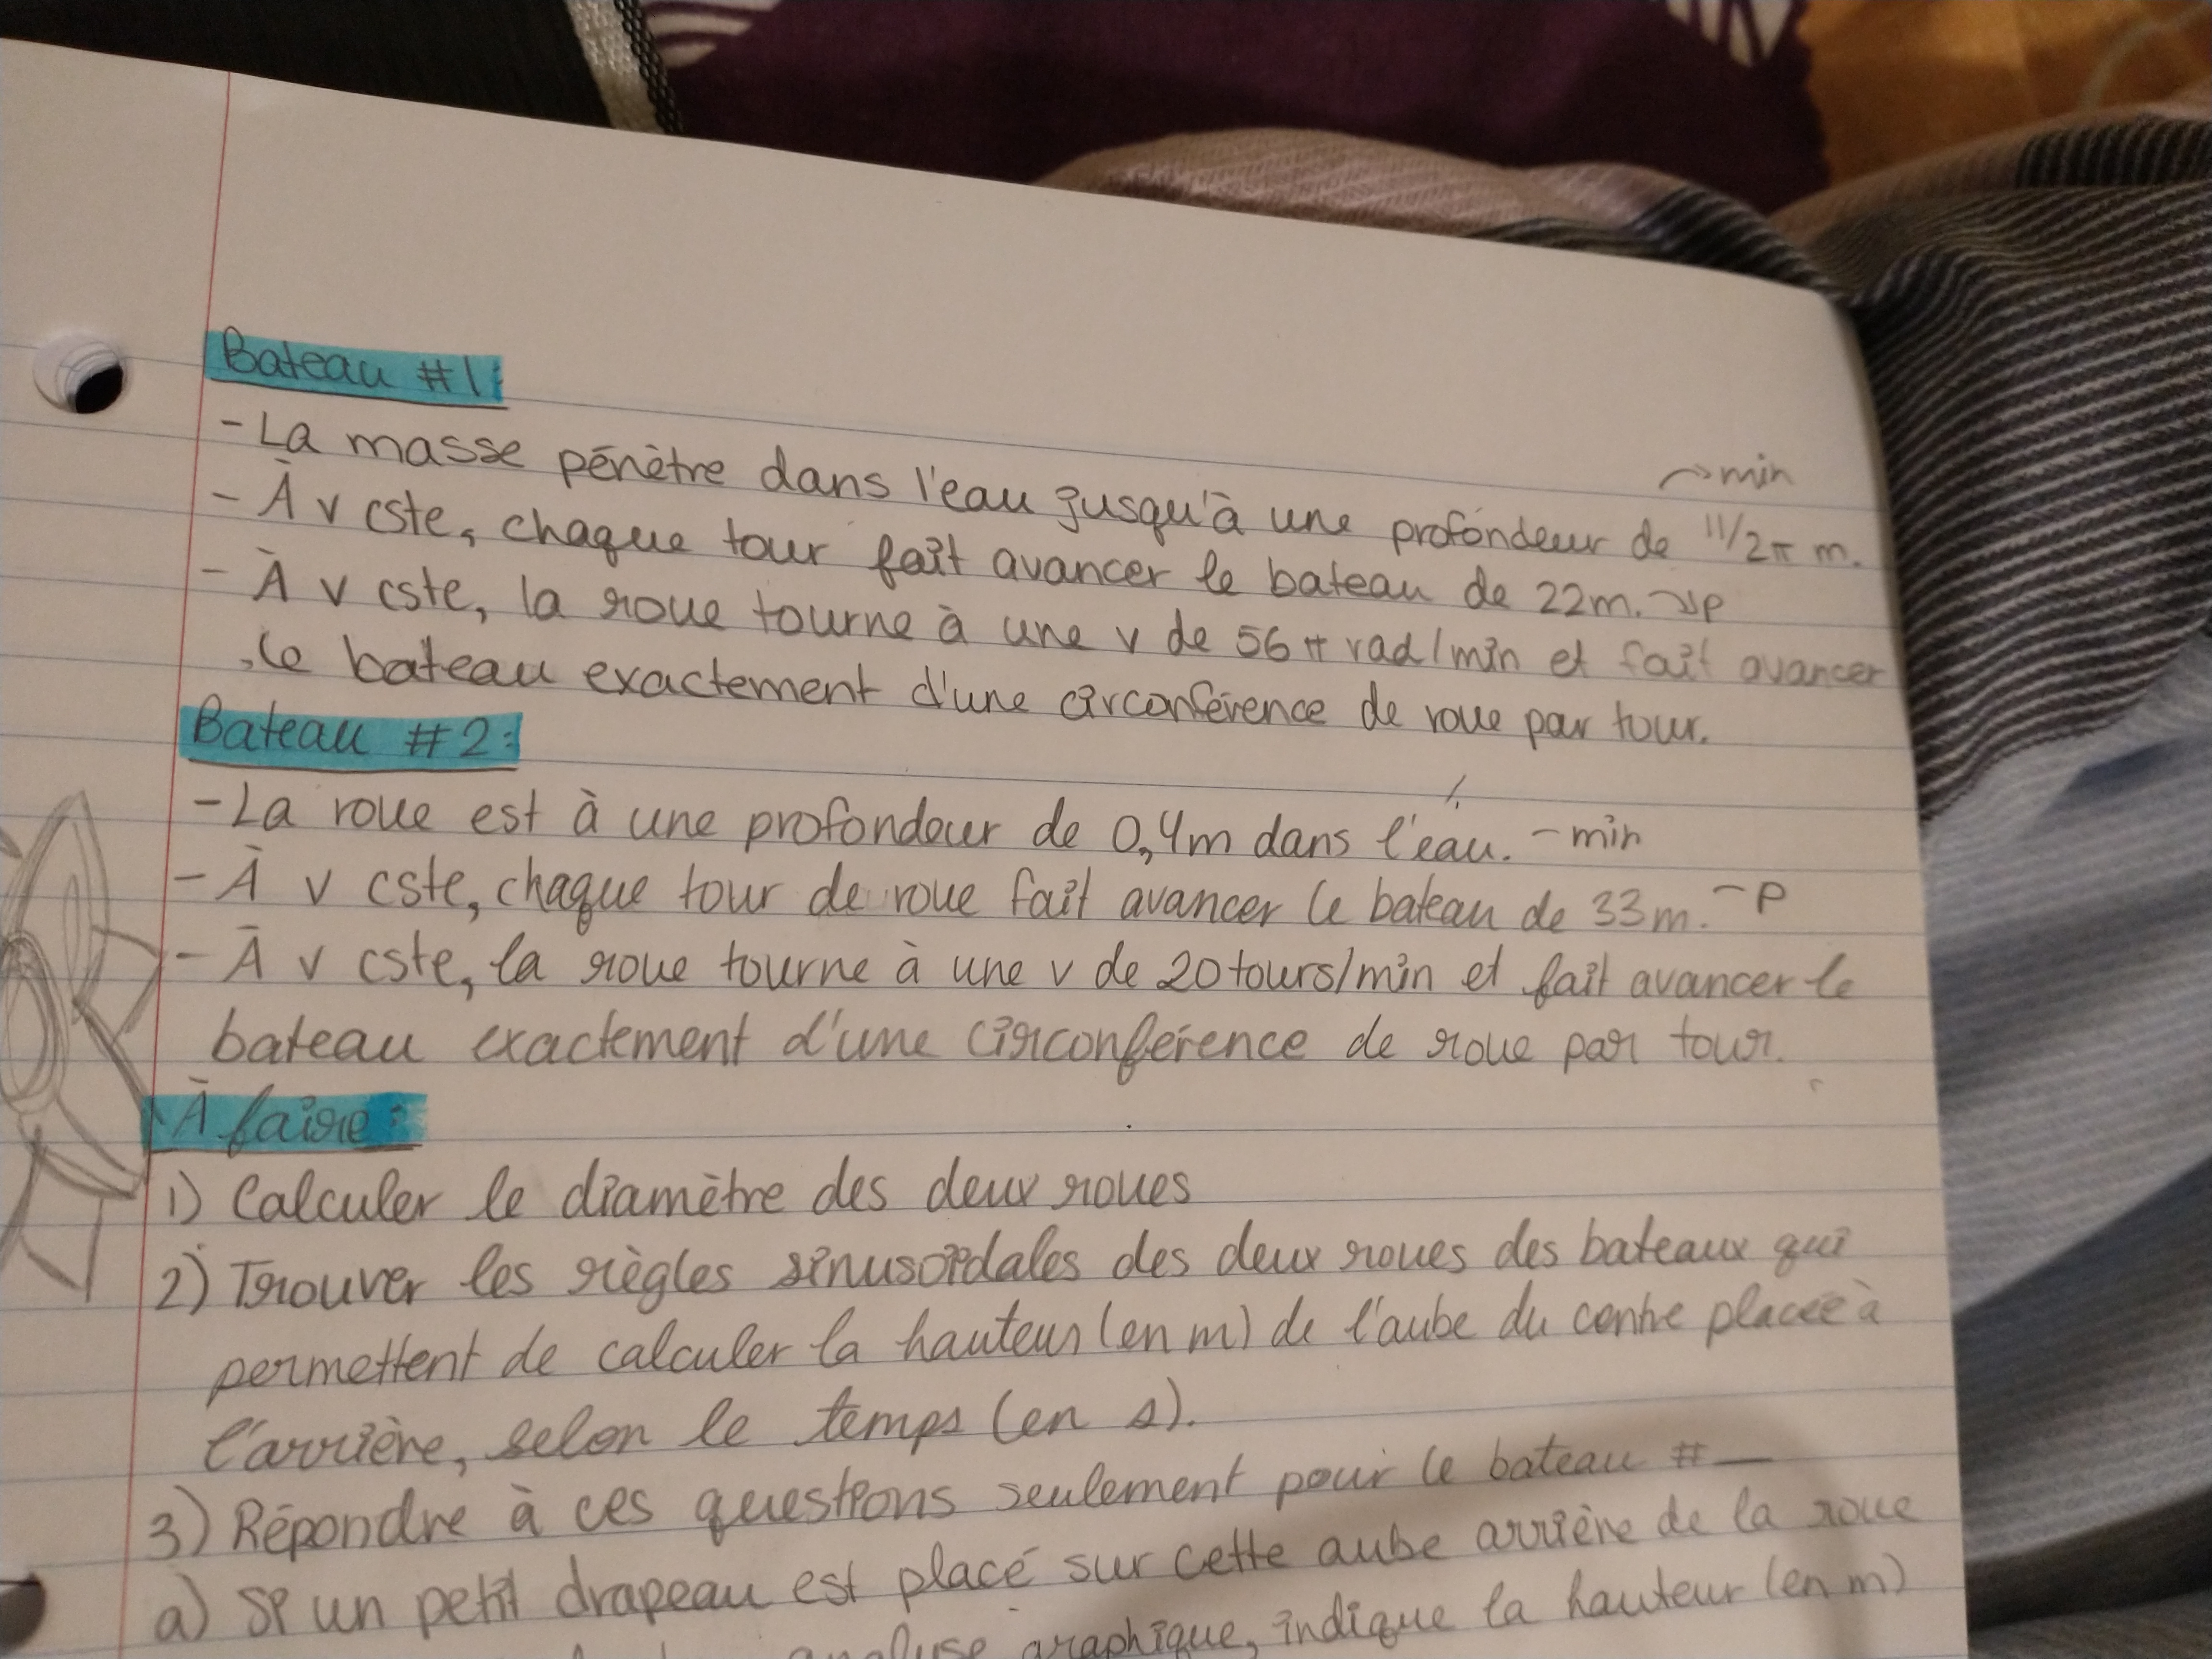 Bateau #1:
- La masse pénètre dans l'eau jusqu'à une profondeur de 11/2π m.
→ min
- À v cste, chaque tour fait avancer le bateau de 22m. → p
- À v cste, la roue tourne à une v de 56 π rad/min et fait avancer
le bateau exactement d'une circonférence de roue par tour.
Bateau #2:
- La roue est à une profondeur de 0,4m dans l'eau. - min
- À v cste, chaque tour de roue fait avancer le bateau de 33m. - p
- À v cste, la roue tourne à une v de 20 tours/min et fait avancer le
bateau exactement d'une circonférence de roue par tour.
À faire:
1) Calculer le diamètre des deux roues
2) Trouver les règles sinusoïdales des deux roues des bateaux qui
permettent de calculer la hauteur (en m) de l'aube du centre placée à
l'arrière, selon le temps (en s).
3) Répondre à ces questions seulement pour le bateau #__
a) Si un petit drapeau est placé sur cette aube arrière de la roue
analyse graphique, indique la hauteur (en m)